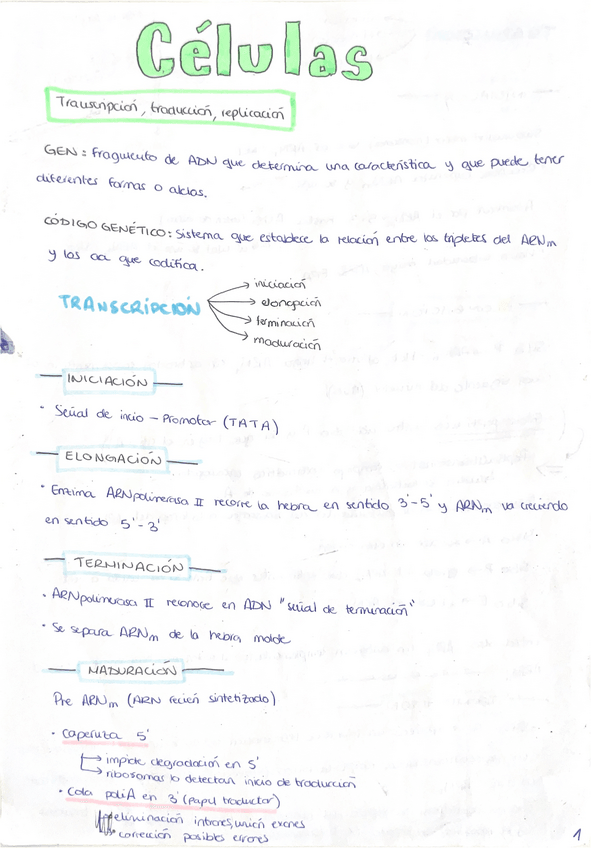 Células
Transcripción, traducción, replicación
GEN: Fragmento de ADN que determina una característica y que puede tener
diferentes formas o alelos.
CÓDIGO GENÉTICO: Sistema que establece la relación entre los tripletes del ARNm
y los aa que codifica.
TRANSCRIPCIÓN
iniciación
elongación
terminación
maduración
INICIACIÓN
· Señal de incio - Promotor (TATA)
ELONGACIÓN
· Enzima ARNpolimerasa II recorre la hebra en sentido 3'-5' y ARNm va creciendo
en sentido 5'-3'
TERMINACIÓN
· ARNpolimerasa II reconoce en ADN "señal de terminación"
· Se separa ARNm de la hebra molde
MADURACIÓN
Pre ARNm (ARN recién sintetizado)
· Caperuza 5'
impide degradación en 5'
ribosomas lo detectan inicio de traducción
· Cola poliA en 3' (papel traductor)
eliminación intrones, unión exones
corrección posibles errores
1